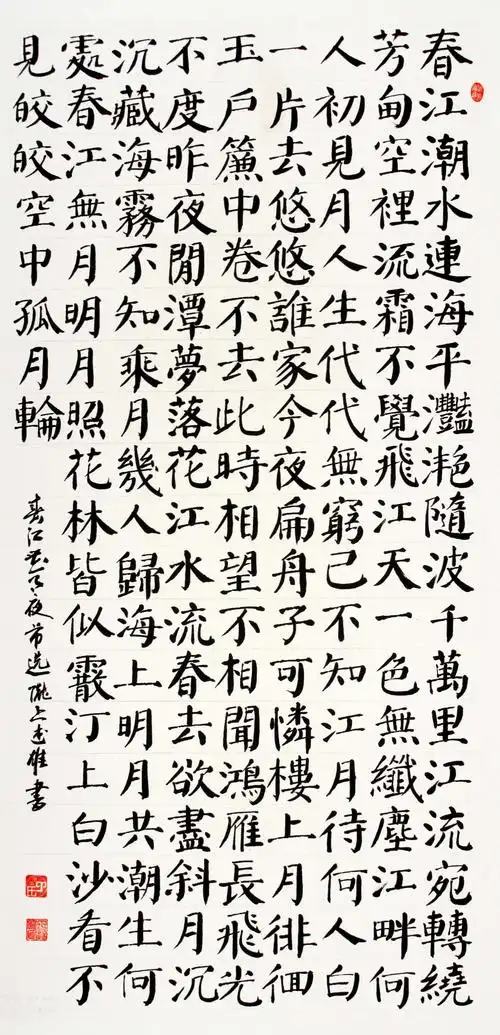 春江潮水連海平灩滟隨波千萬里江流宛轉繞
芳甸空裡流霜不覺飛江天一色無纖塵江畔何
人初見月人生代代無窮己不知江月待何人白
一片去悠悠誰家今夜扁舟子可憐樓上月徘徊
玉戶簾中卷不去此時相望不相聞鴻雁長飛光
不度昨夜閒潭夢落花江水流春去欲盡斜月沉
沉藏海霧不知乘月幾人歸海上明月共潮生何
處春江無月明月照花林皆似霰汀上白沙看不
見皎皎空中孤月輪
春江花月夜节选 陇上雄書